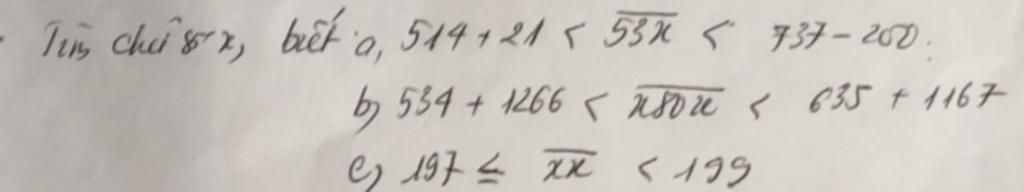 Tìm chữ số x, biết a, 514 + 21 < \overline{53x} < 737 - 200.
b) 534 + 1266 < \overline{x80x} < 635 + 1167
c) 197 ≤ \overline{xx} < 199